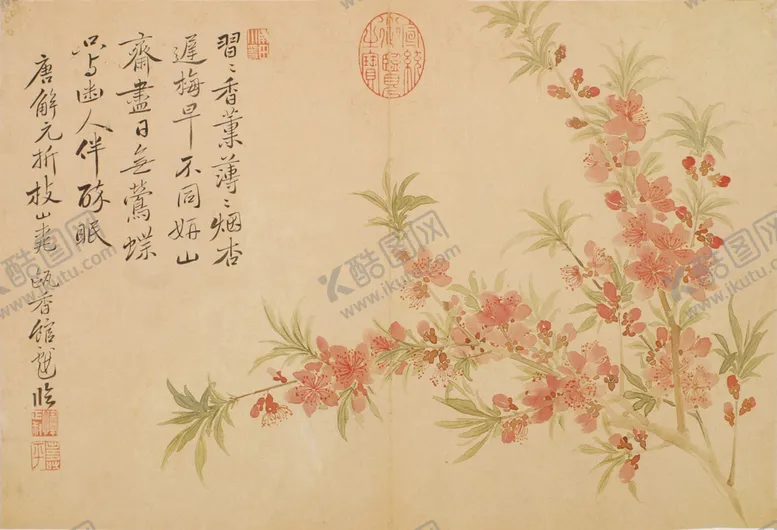 習〻香薰薄〻烟杏
遲梅早不同妍山
齋盡日無鶯蝶
只與幽人伴醉眠
唐解元折枝山桃 甌香館壽平臨
宣統御覽之寶
酷图网
www.ikutu.com